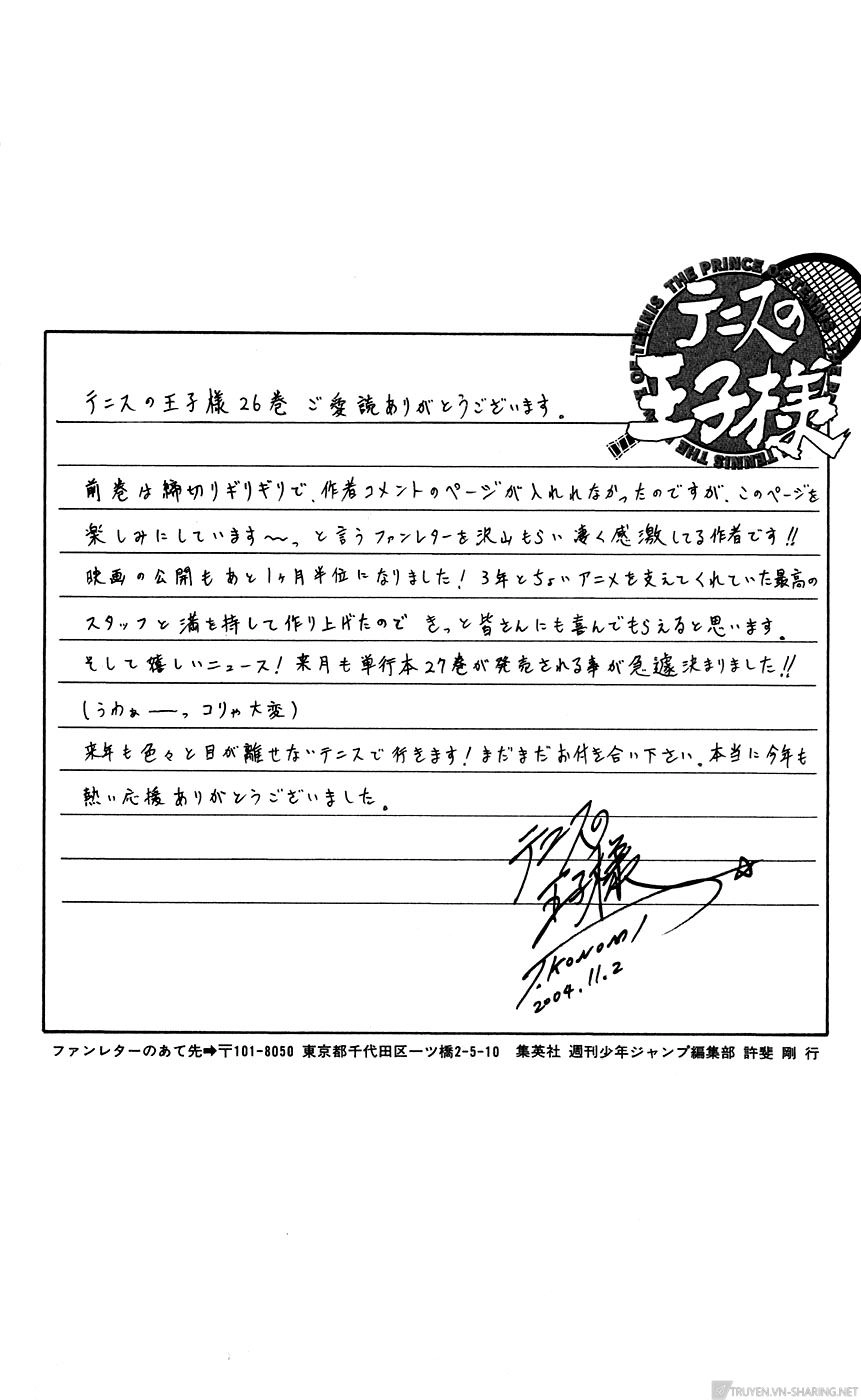 THE PRINCE OF TENNIS THE PRINCE OF TENNIS THE
テニスの
王子様
テニスの王子様26巻 ご愛読ありがとうございます。
前巻は締切りギリギリで、作者コメントのページが入れれなかったのですが、このページを
楽しみにしています〜っと言うファンレターを沢山もらい凄く感激してる作者です!!
映画の公開もあと1ヶ月半位になりました! 3年とちょいアニメを支えてくれていた最高の
スタッフと満を持して作り上げたので きっと皆さんにも喜んでもらえると思います。
そして嬉しいニュース! 来月も単行本27巻が発売される事が急遽決まりました!!
(うわぁ――っコリゃ大変)
来年も色々と目が離せないテニスで行きます! まだまだお付き合い下さい。本当に今年も
熱い応援ありがとうございました。
テニスの
王子様
T.KONOMI
2004.11.2
ファンレターのあて先➡〒101-8050 東京都千代田区一ツ橋2-5-10 集英社 週刊少年ジャンプ編集部 許斐 剛 行
TRUYEN.VN-SHARING.NET